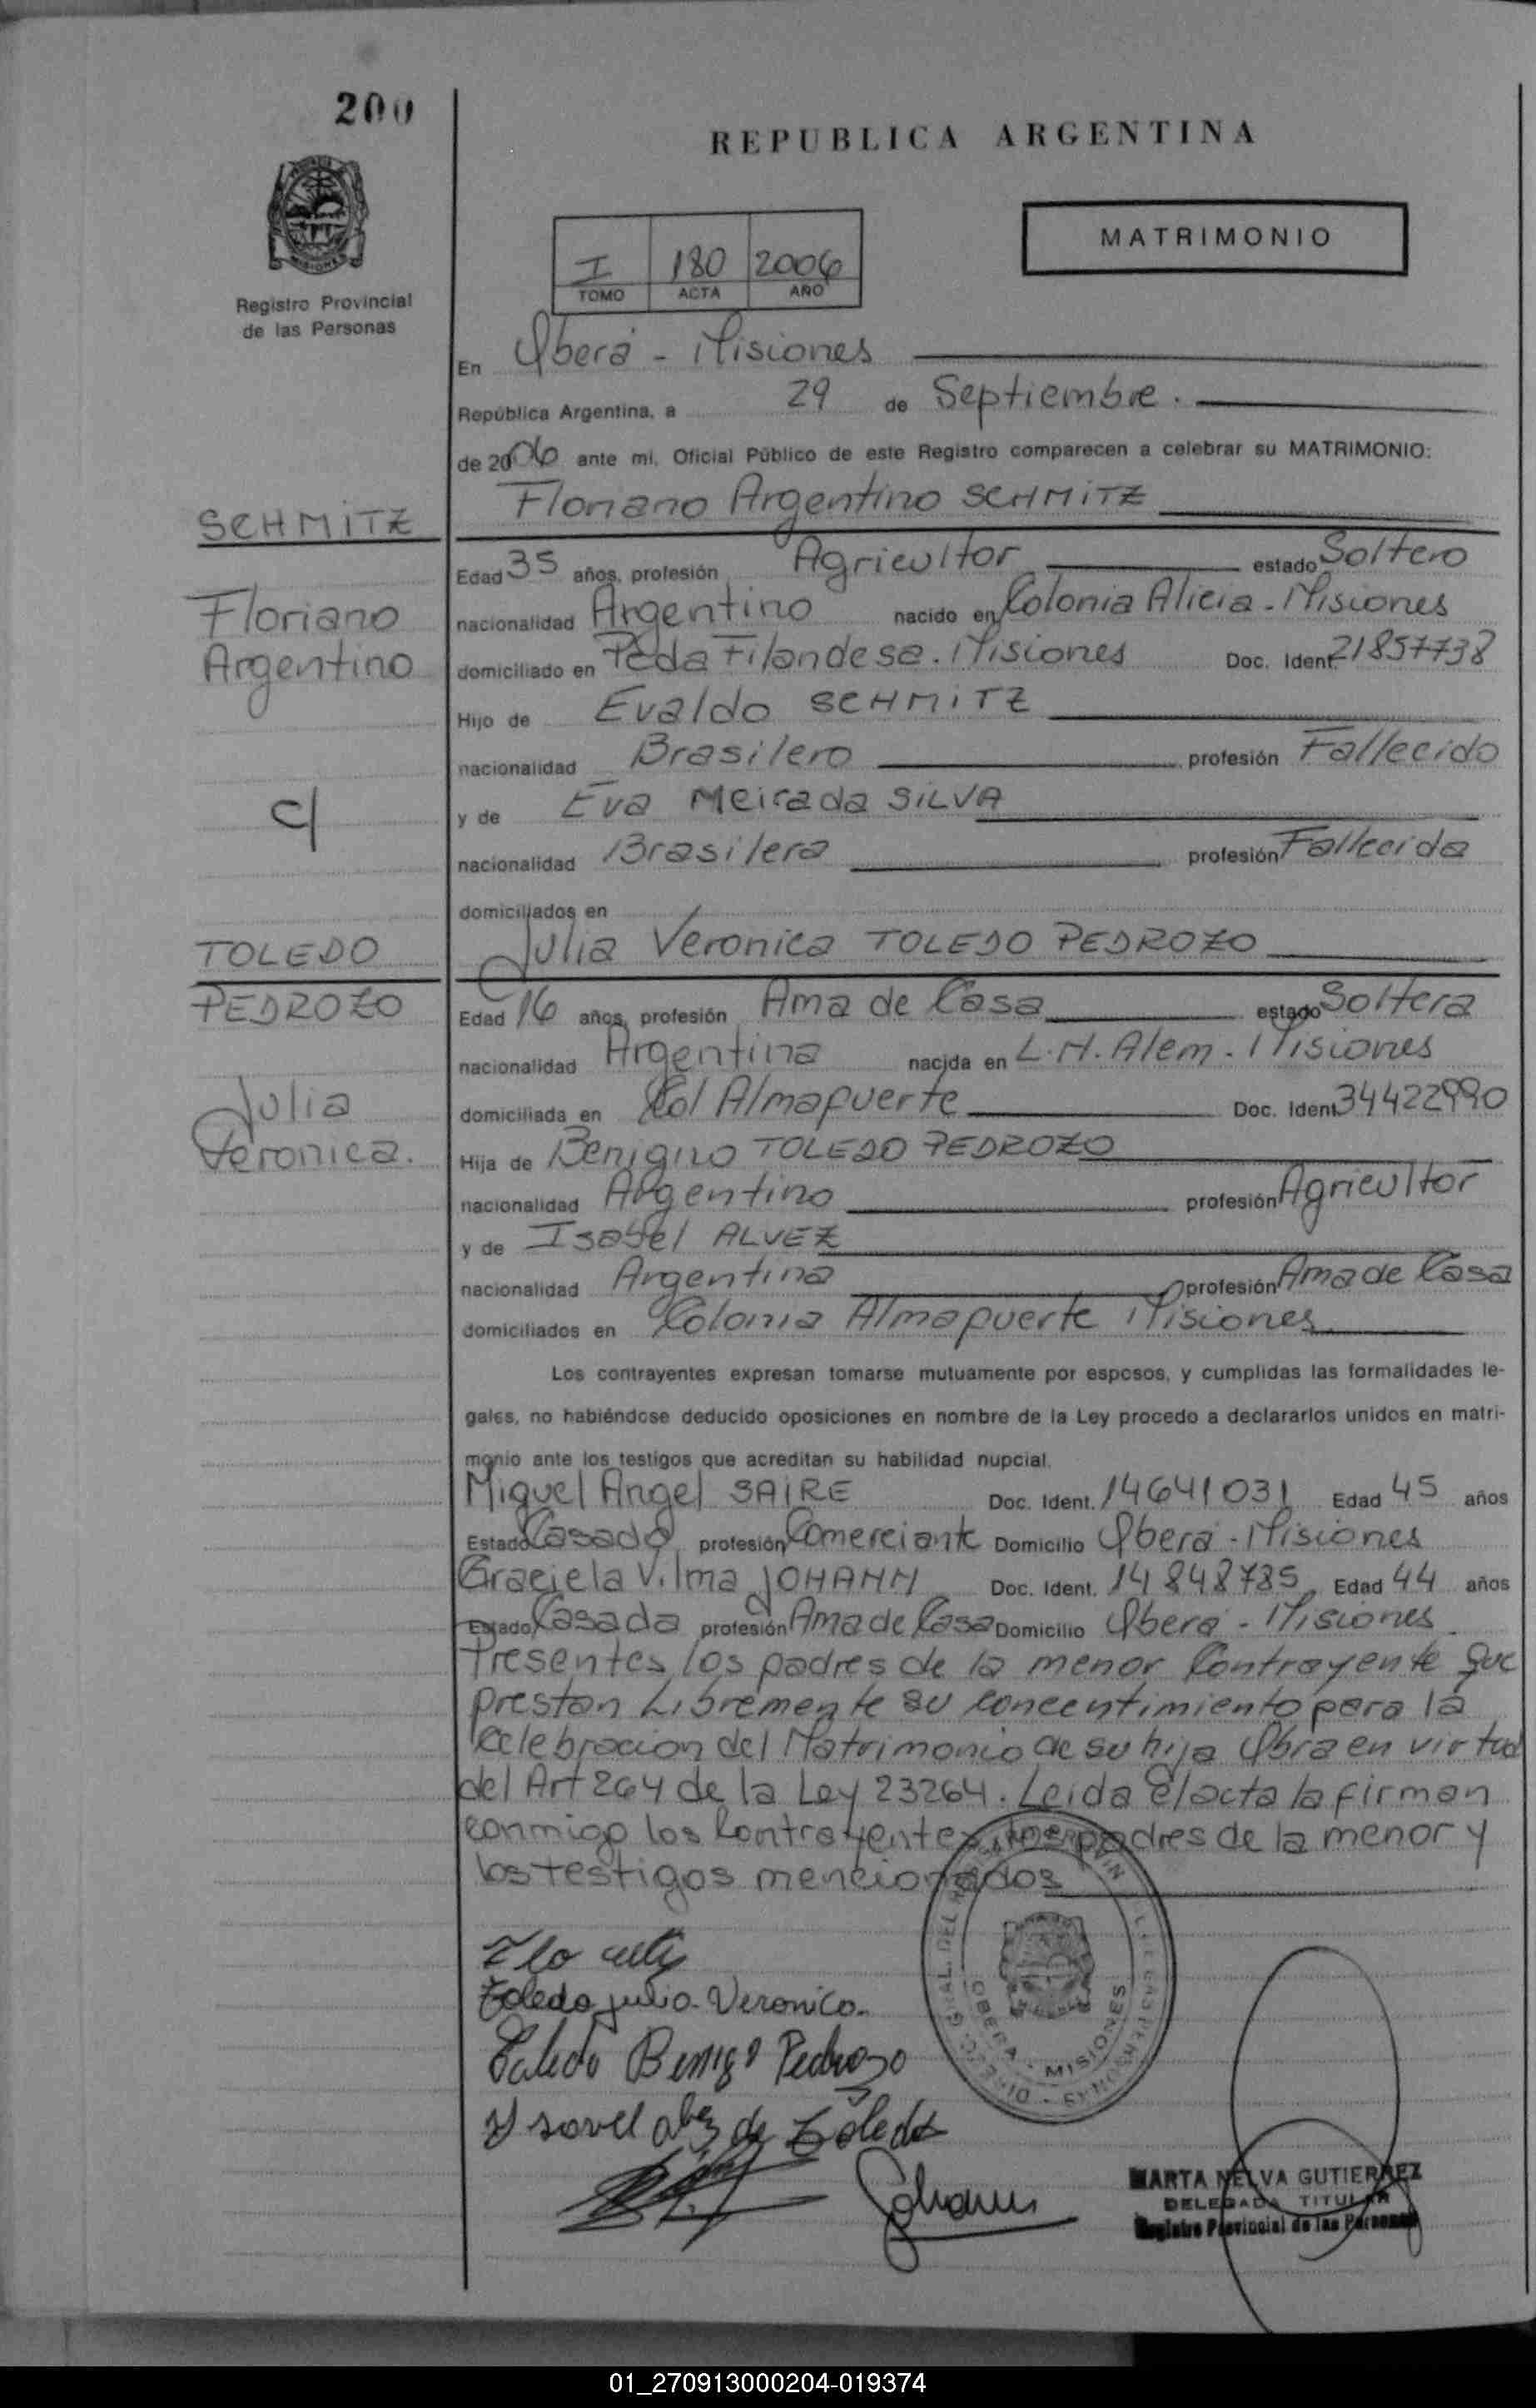 200
REPUBLICA ARGENTINA
MATRIMONIO
I 180 2006
TOMO ACTA AÑO
Registro Provincial
de las Personas
En Oberá - Misiones
República Argentina, a 29 de Septiembre.
de 2006 ante mi, Oficial Público de este Registro comparecen a celebrar su MATRIMONIO:
Floriano Argentino SCHMITZ
SCHMITZ
Floriano
Argentino
Edad 35 años, profesión Agricultor estado Soltero
nacionalidad Argentino nacido en Colonia Alicia - Misiones
domiciliado en Pcda Filandesa. Misiones Doc. Ident. 21857738
Hijo de Evaldo SCHMITZ
nacionalidad Brasilero profesión Fallecido
c/
y de Eva Meirada SILVA
nacionalidad Brasilera profesión Fallecida
domiciliados en
Julia Veronica TOLEDO PEDROZO
TOLEDO
PEDROZO
Julia
Veronica.
Edad 16 años, profesión Ama de Casa estado Soltera
nacionalidad Argentina nacida en L.N.Alem - Misiones
domiciliada en Col Almafuerte Doc. Ident. 34422990
Hija de Benigno TOLEDO PEDROZO
nacionalidad Argentino profesión Agricultor
y de Isabel ALVEZ
nacionalidad Argentina profesión Ama de Casa
domiciliados en Colonia Almafuerte Misiones
Los contrayentes expresan tomarse mutuamente por esposos, y cumplidas las formalidades le-
gales, no habiéndose deducido oposiciones en nombre de la Ley procedo a declararlos unidos en matri-
monio ante los testigos que acreditan su habilidad nupcial.
Miguel Angel SAIRE Doc. Ident. 14641031 Edad 45 años
Estado Casado profesión Comerciante Domicilio Oberá - Misiones
Graciela Vilma JOHANN Doc. Ident. 14848785 Edad 44 años
Estado Casada profesión Ama de Casa Domicilio Oberá - Misiones
Presentes los padres de la menor Contrayente que
prestan Libremente su concentimiento para la
Celebracion del Matrimonio de su hija Obra en virtud
del Art 264 de la Ley 23264. Leida el acta la firman
conmigo los Contrayentes, los padres de la menor y
los testigos mencionados
Toledo Julia Veronica.
Toledo Benigo Pedrozo
Ysavel de Toledo
Johann
OBERA - MISIONES
MARTA NELVA GUTIERREZ
DELEGADA TITULAR
Registro Provincial de las Personas
01_270913000204-019374